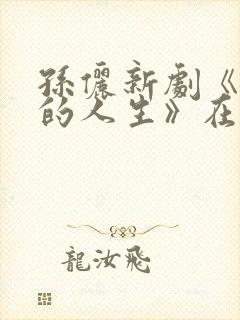 孫儷新劇《
的人生》在
龍汝飛